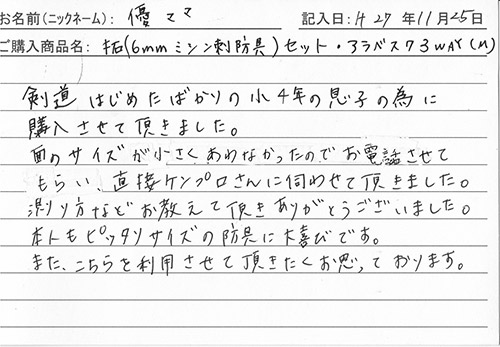 お名前(ニックネーム): 優ママ 記入日: H 27 年 11 月 25 日
ご購入商品名: 拓(6mmミシン刺防具)セット・アラベスク3WAY(M)
剣道はじめたばかりの小4年の息子の為に
購入させて頂きました。
面のサイズが小さくあわなかったのでお電話させて
もらい、直接ケンプロさんに伺わせて頂きました。
測り方などお教えて頂きありがとうございました。
本人もピッタリサイズの防具に大喜びです。
また、こちらを利用させて頂きたくお思っております。